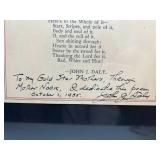 Here's to the Whole of it—
Stars, Stripes, and pole of it,
Body and soul of it.
O, and the roll of it,
Sun shining through;
Hearts in accord for it
Swear by the sword for it,
Red, White and Blue!
—JOHN J. DALY.
To my Gold Star Mothers, Through
Mother Nock, I dedicate this poem
October 1, 1935. John J. Daly